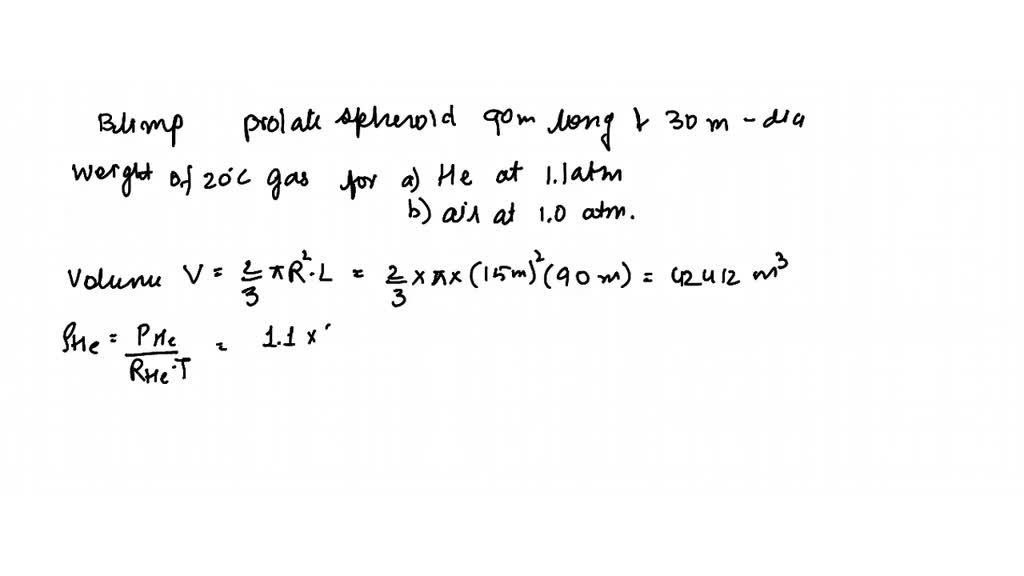 Blimp prolate spheroid 90m long & 30 m - dia
Weight of 20°C gas for a) He at 1.1atm
b) air at 1.0 atm.
Volume V = 2/3 πR²·L = 2/3 × π × (15m)² (90m) = 42412 m³
ρHe = PHe / RHe·T = 1.1 ×